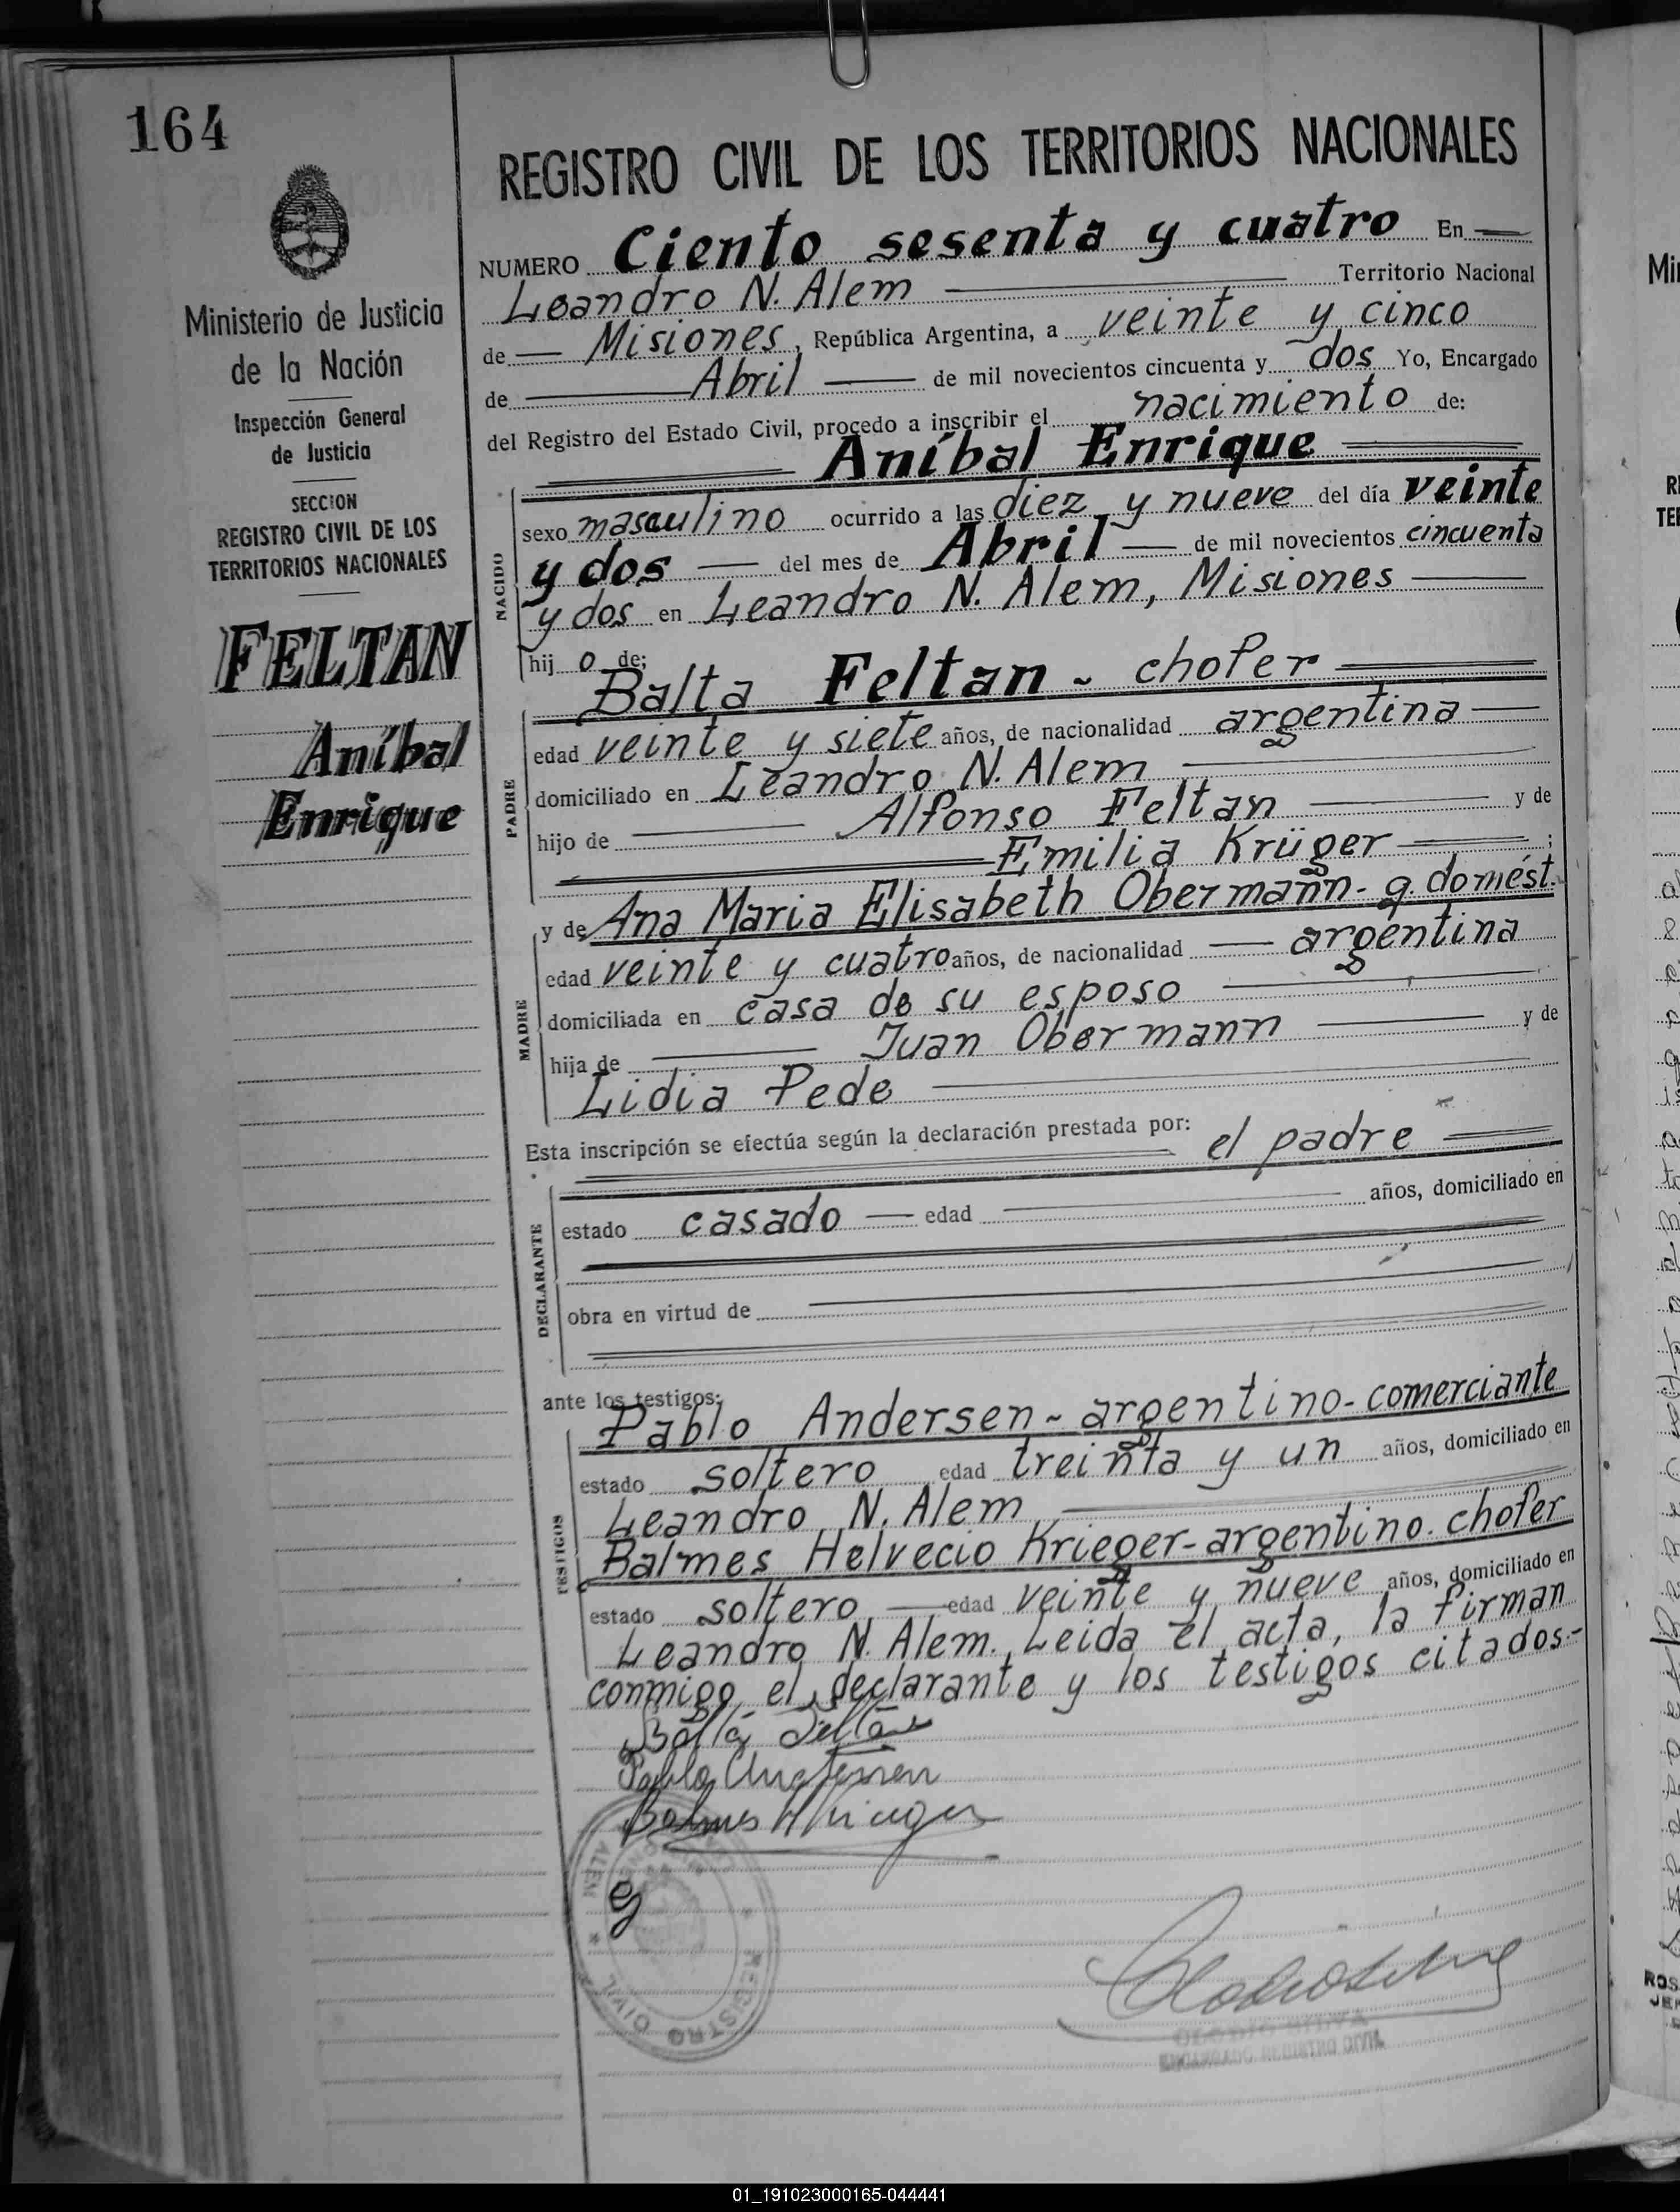 164
REGISTRO CIVIL DE LOS TERRITORIOS NACIONALES
NUMERO Ciento sesenta y cuatro En
Leandro N. Alem Territorio Nacional
de Misiones, República Argentina, a veinte y cinco
de Abril de mil novecientos cincuenta y dos Yo, Encargado
del Registro del Estado Civil, procedo a inscribir el nacimiento de:
Aníbal Enrique
sexo masculino ocurrido a las diez y nueve del día veinte
y dos del mes de Abril de mil novecientos cincuenta
y dos en Leandro N. Alem, Misiones
hij o de;
NACIDO
Balta Feltan - chofer
edad veinte y siete años, de nacionalidad argentina
domiciliado en Leandro N. Alem
hijo de Alfonso Feltan y de
Emilia Krüger ;
PADRE
y de Ana Maria Elisabeth Obermann - q. domést.
edad veinte y cuatro años, de nacionalidad argentina
domiciliada en casa de su esposo
hija de Juan Obermann y de
Lidia Pede
MADRE
Esta inscripción se efectúa según la declaración prestada por:
el padre
estado casado edad años, domiciliado en
obra en virtud de
DECLARANTE
ante los testigos:
Pablo Andersen - argentino - comerciante
estado soltero edad treinta y un años, domiciliado en
Leandro N. Alem
Balmes Helvecio Krieger - argentino. chofer
estado soltero edad veinte y nueve años, domiciliado en
Leandro N. Alem. Leida el acta, la firman
conmigo el declarante y los testigos citados.-
TESTIGOS
Balta Feltan
Pablo Andersen
Balmes H Krieger
ALEM
REGISTRO CIVIL
CLODIO SILVA
ENCARGADO REGISTRO CIVIL
Ministerio de Justicia
de la Nación
Inspección General
de Justicia
SECCION
REGISTRO CIVIL DE LOS
TERRITORIOS NACIONALES
FELTAN
Aníbal
Enrique
01_191023000165-044441